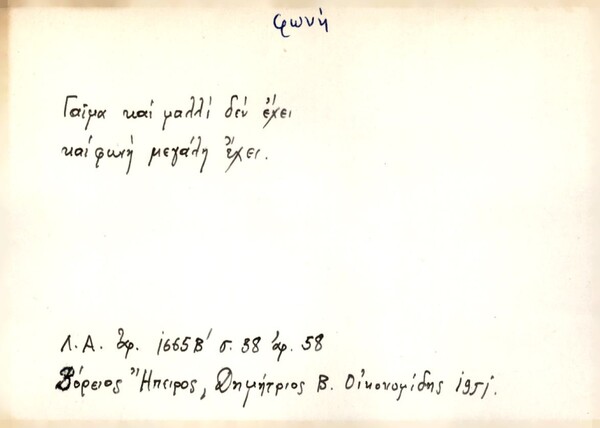 φωνή
Γαῖμα καί μαλλί δέν ἔχει
καί φωνή μεγάλη ἔχει.
Λ.Α. ἀρ. 1665Β' σ. 38 ἀρ. 58
Βόρειος Ἤπειρος, Δημήτριος Β. Οἰκονομίδης 1951.